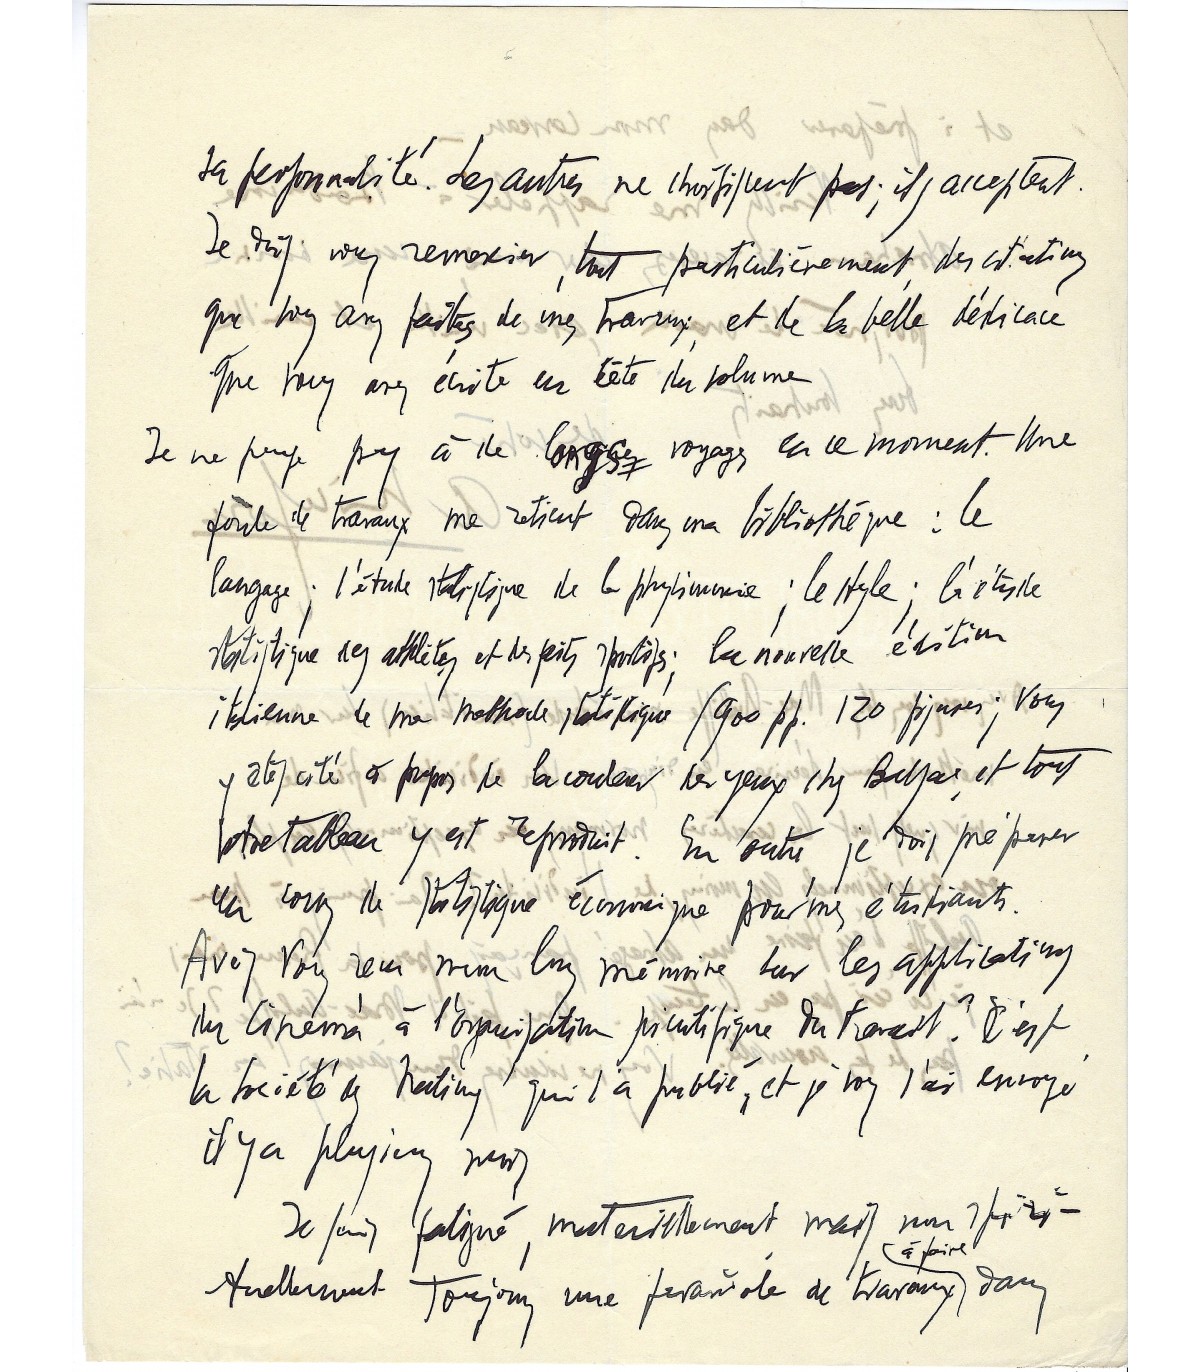 sa personnalité. Les autres ne choisissent pas; ils acceptent.
Je dois vous remercier, tout particulièrement, des citations
que vous avez faites de mes travaux, et de la belle dédicace
que vous avez écrite en tête du volume
Je ne pense pas à de longs voyages en ce moment. Une
foule de travaux me retient dans ma bibliothèque : le
langage; l'étude statistique de la physionomie; le style; l'étude
statistique des athlètes et des faits sportifs; la nouvelle édition
italienne de ma méthode statistique (900 pp. 120 figures; vous
y êtes cité à propos de la couleur des yeux chez Balzac, et tout
votre tableau y est reproduit. En outre je dois préparer
un cours de statistique économique pour mes étudiants.
Avez vous reçu mon long mémoire sur les applications
du Cinéma à l'organisation scientifique du travail? C'est
la Société des Nations qui l'a publié, et je vous l'ai envoyé
il y a plusieurs mois
Je suis fatigué, matériellement mais non spiri-
(à faire
tuellement Toujours une de travaux) dans